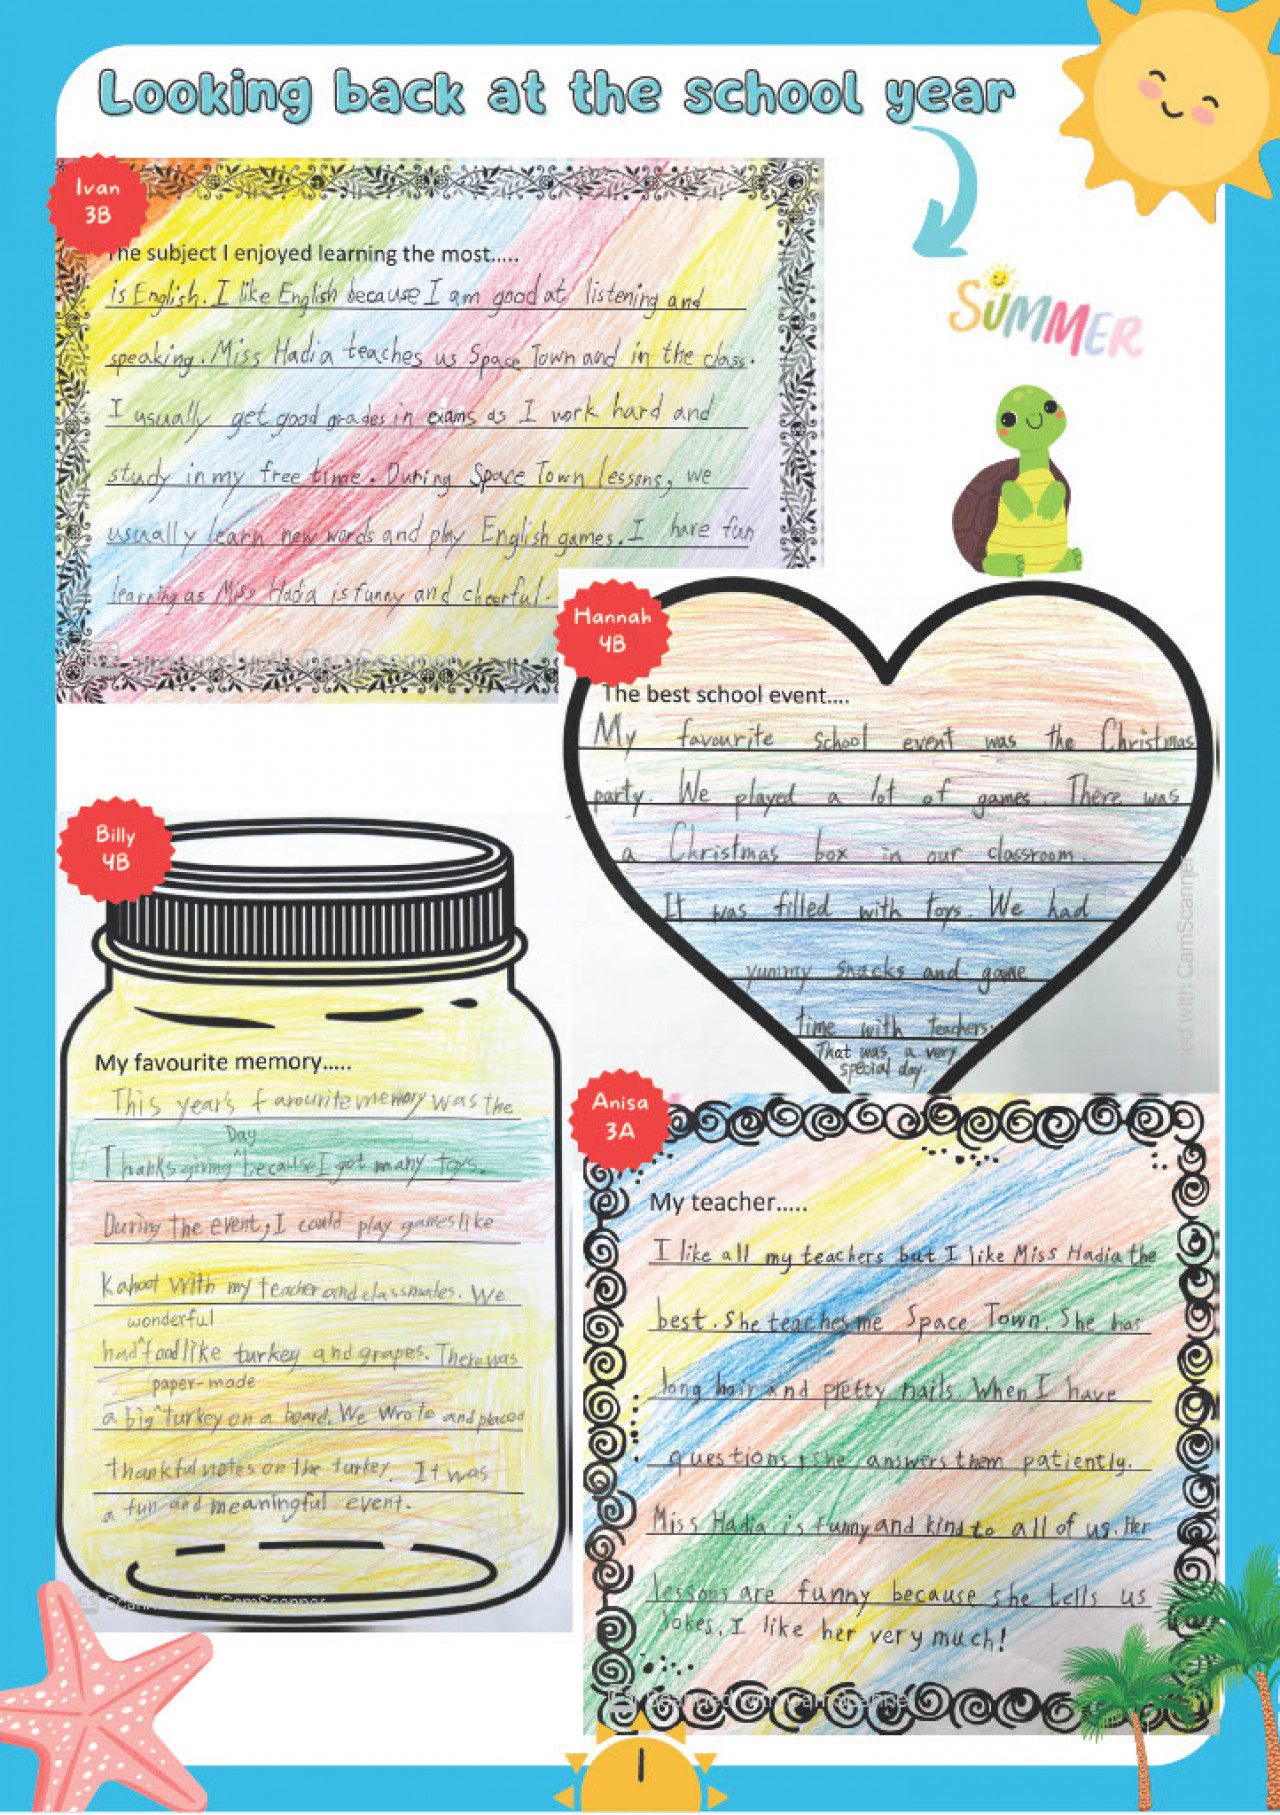 Looking back at the school year
SUMMER
Ivan
3B
The subject I enjoyed learning the most.....
is English. I like English because I am good at listening and
speaking. Miss Hadia teaches us Space Town and in the class.
I usually get good grades in exams as I work hard and
study in my free time. During Space Town lessons, we
usually learn new words and play English games. I have fun
learning as Miss Hadia is funny and cheerful.
Scanned with CamScanner
Hannah
4B
The best school event....
My favourite school event was the Christmas
party. We played a lot of games. There was
a Christmas box in our classroom.
It was filled with toys. We had
yummy snacks and game
time with teachers.
That was a very
special day.
Billy
4B
My favourite memory.....
This year's favourite memory was the
Day
Thanksgiving ^ because I got many toys.
During the event, I could play games like
Kahoot with my teacher and classmates. We
wonderful
had ^ food like turkey and grapes. There was
paper-made
a big ^ turkey on a board. We wrote and placed
thankful notes on the turkey. It was
a fun and meaningful event.
CS Scanned with CamScanner
Anisa
3A
My teacher.....
I like all my teachers but I like Miss Hadia the
best. She teaches me Space Town. She has
long hair and pretty nails. When I have
questions, she answers them patiently.
Miss Hadia is funny and kind to all of us. Her
lessons are funny because she tells us
Jokes. I like her very much!
Scanned with CamScanner
1